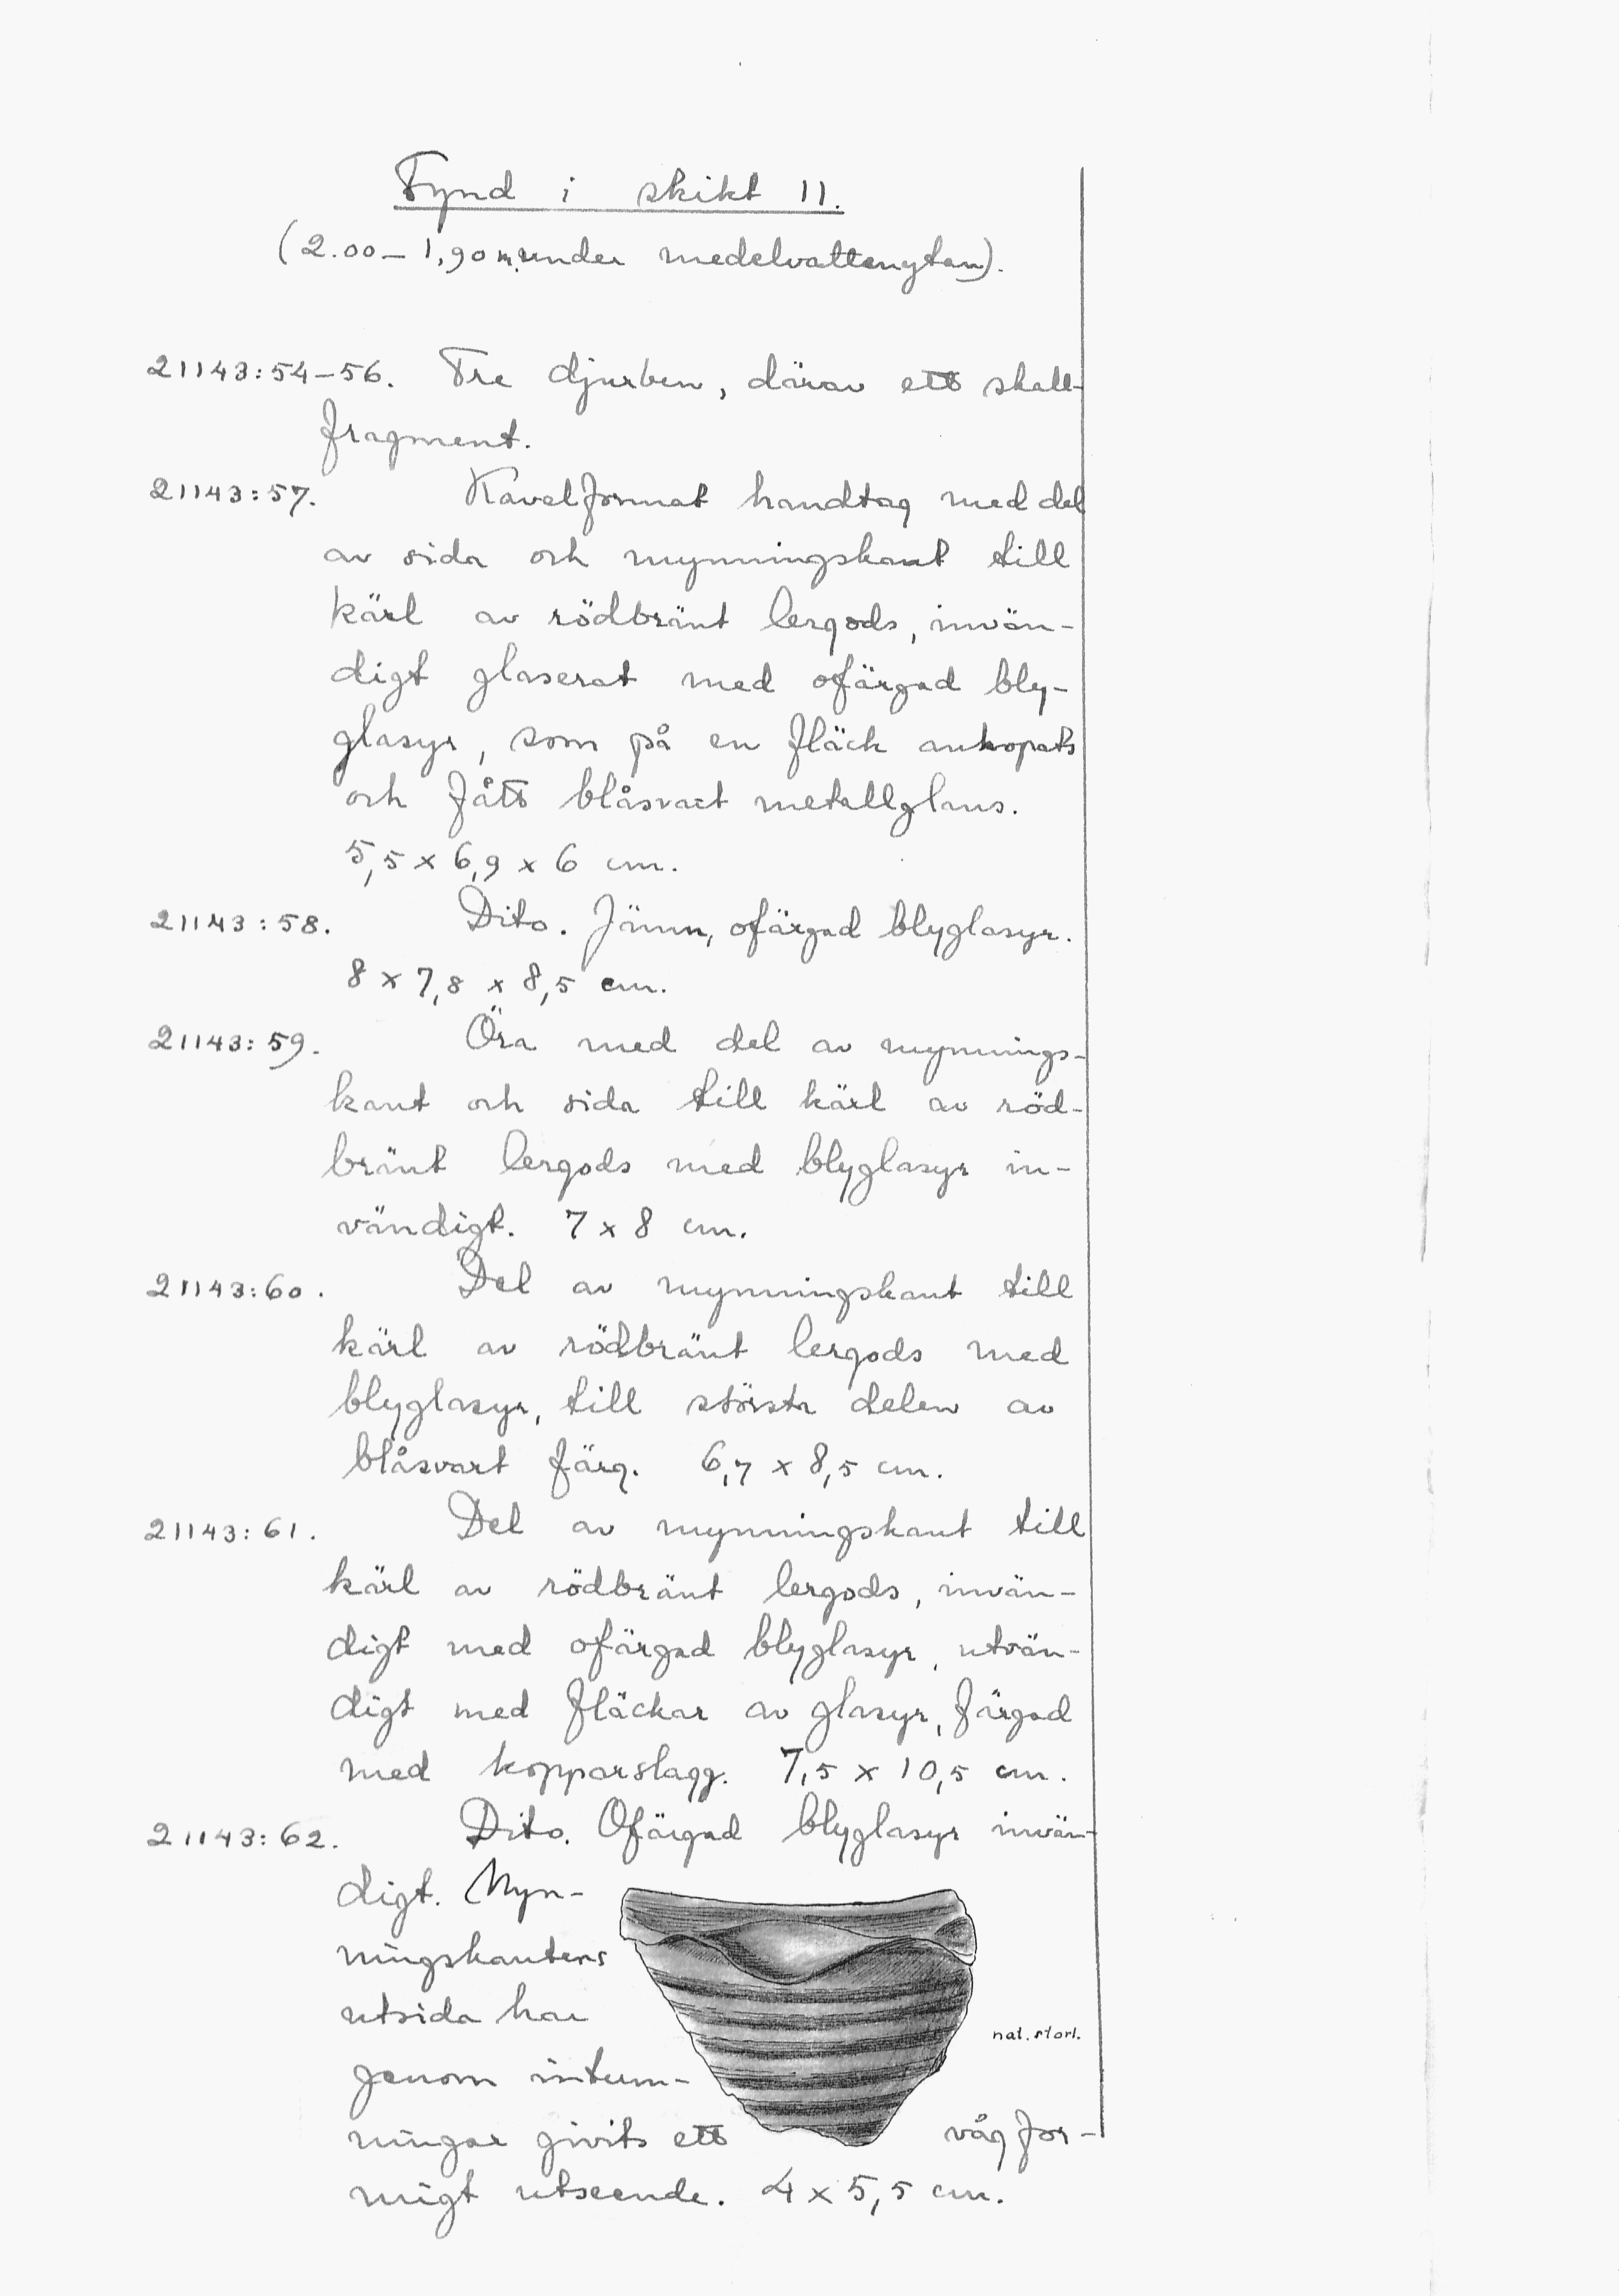 Fynd i skikt 11.
(2.00–1,90 m. under medelvattenytan).
21143:54–56. Tre djurben, därav ett skall-
fragment.
21143:57. Kavelformat handtag med del
av sida och mynningskant till
kärl av rödbränt lergods, invän-
digt glaserat med ofärgad bly-
glasyr, som på en fläck ankopats
och fått blåsvart metallglans.
5,5 x 6,9 x 6 cm.
21143:58. Dito. Jämn, ofärgad blyglasyr.
8 x 7,8 x 8,5 cm.
21143:59. Öra med del av mynnings-
kant och sida till kärl av röd-
bränt lergods med blyglasyr in-
vändigt. 7 x 8 cm.
21143:60. Del av mynningskant till
kärl av rödbränt lergods med
blyglasyr, till största delen av
blåsvart färg. 6,7 x 8,5 cm.
21143:61. Del av mynningskant till
kärl av rödbränt lergods, invän-
digt med ofärgad blyglasyr, utvän-
digt med fläckar av glasyr, färgad
med kopparslagg. 7,5 x 10,5 cm.
21143:62. Dito. Ofärgad blyglasyr invän-
digt. Myn-
ningskantens
utsida har
nat. storl.
genom intum-
ningar givits ett vågfor-
migt utseende. 4 x 5,5 cm.